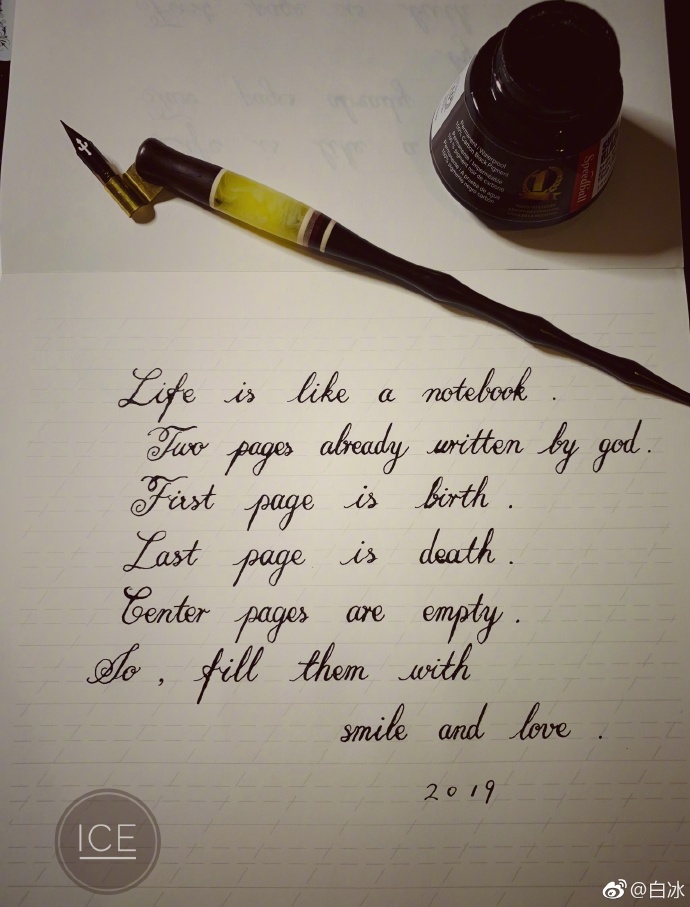 Permanent / Waterproof
100% Carbon Black Pigment
Speedball
Life is like a notebook .
Two pages already written by god .
First page is birth .
Last page is death .
Center pages are empty .
So , fill them with
smile and love .
2019
ICE
@白冰